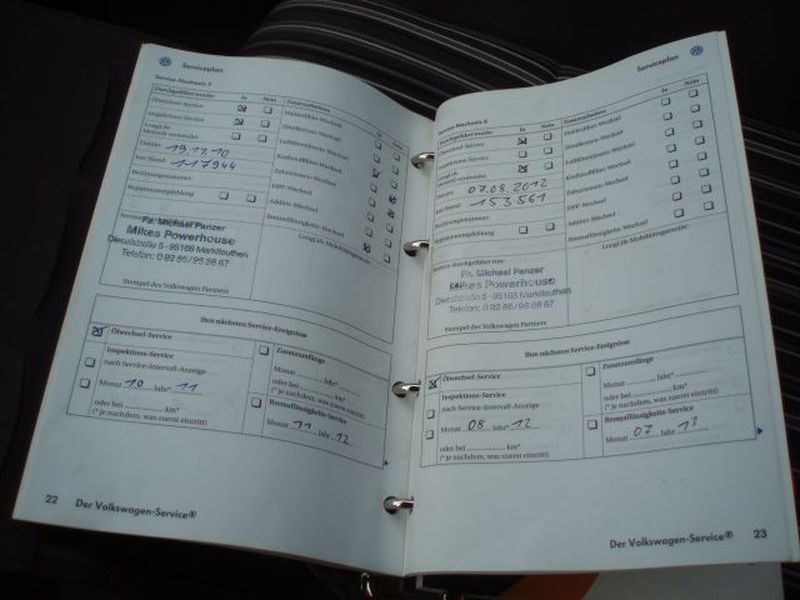 Serviceplan
Service-Nachweis 5
Durchgeführt wurde:
Ja
Nein
Zusatzarbeiten
Ja
Nein
Ölwechsel-Service
Inspektions-Service
LongLife
bleibend vermieden
Datum: 19.12.10
km-Stand: 117944
Bestätigungsnummer:
Registrierungspflichtig
Staubfilter-Wechsel
Zündkerzen-Wechsel
Luftfiltereinsatz-Wechsel
Kraftstofffilter-Wechsel
Zahnriemen-Wechsel
DPF-Wechsel
Additiv-Wechsel
Bremsflüssigkeits-Wechsel
LongLife Mobilitätsgarantie:
Fa. Michael Panzer
Mikes Powerhouse
Dieselstraße 5 - 95168 Marktleuthen
Telefon: 0 92 85/95 28 67
Stempel des Volkswagen Partners
Ihre nächsten Service-Ereignisse
Ölwechsel-Service
Inspektions-Service
nach Service-Intervall-Anzeige
Monat 10 Jahr* 11
oder bei km*
(* je nachdem, was zuerst eintritt)
Zusatzumfänge
Monat Jahr*
oder bei km*
(* je nachdem, was zuerst eintritt)
Bremsflüssigkeits-Service
Monat 11 Jahr 12
22 Der Volkswagen-Service®
Serviceplan
Service-Nachweis 6
Durchgeführt wurde:
Ja
Nein
Zusatzarbeiten
Ja
Nein
Ölwechsel-Service
Inspektions-Service
LongLife
Datum: 07.08.2012
km-Stand: 153561
Bestätigungsnummer:
Registrierungspflichtig
Zündkerzen-Wechsel
Luftfiltereinsatz-Wechsel
Kraftstofffilter-Wechsel
Zahnriemen-Wechsel
DPF-Wechsel
Additiv-Wechsel
Bremsflüssigkeits-Wechsel
LongLife Mobilitätsgarantie:
Service durchgeführt von:
Fa. Michael Panzer
Mikes Powerhouse
Dieselstraße 5 - 95168 Marktleuthen
Telefon: 0 92 85/95 28 67
Stempel des Volkswagen Partners
Ihre nächsten Service-Ereignisse
Ölwechsel-Service
Inspektions-Service
nach Service-Intervall-Anzeige
Monat 08 Jahr* 12
oder bei km*
(* je nachdem, was zuerst eintritt)
Zusatzumfänge
Monat Jahr*
oder bei km*
(* je nachdem, was zuerst eintritt)
Bremsflüssigkeits-Service
Monat 07 Jahr 13
Der Volkswagen-Service® 23